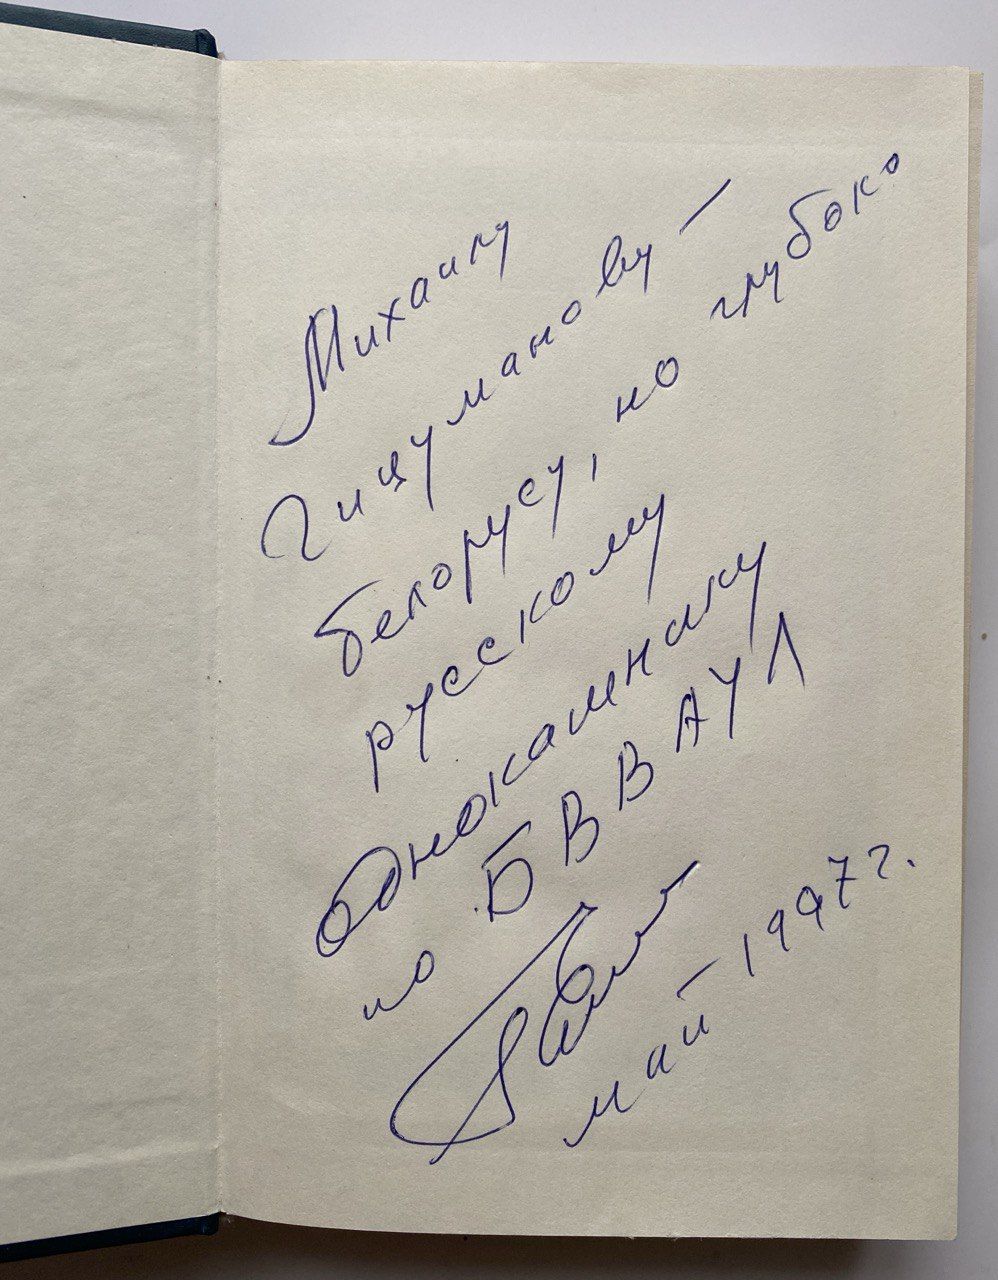 Михаилу
Гицуманову —
белорусу, но глубоко
русскому
однокашнику
по БВВАУЛ
май 1997 г.